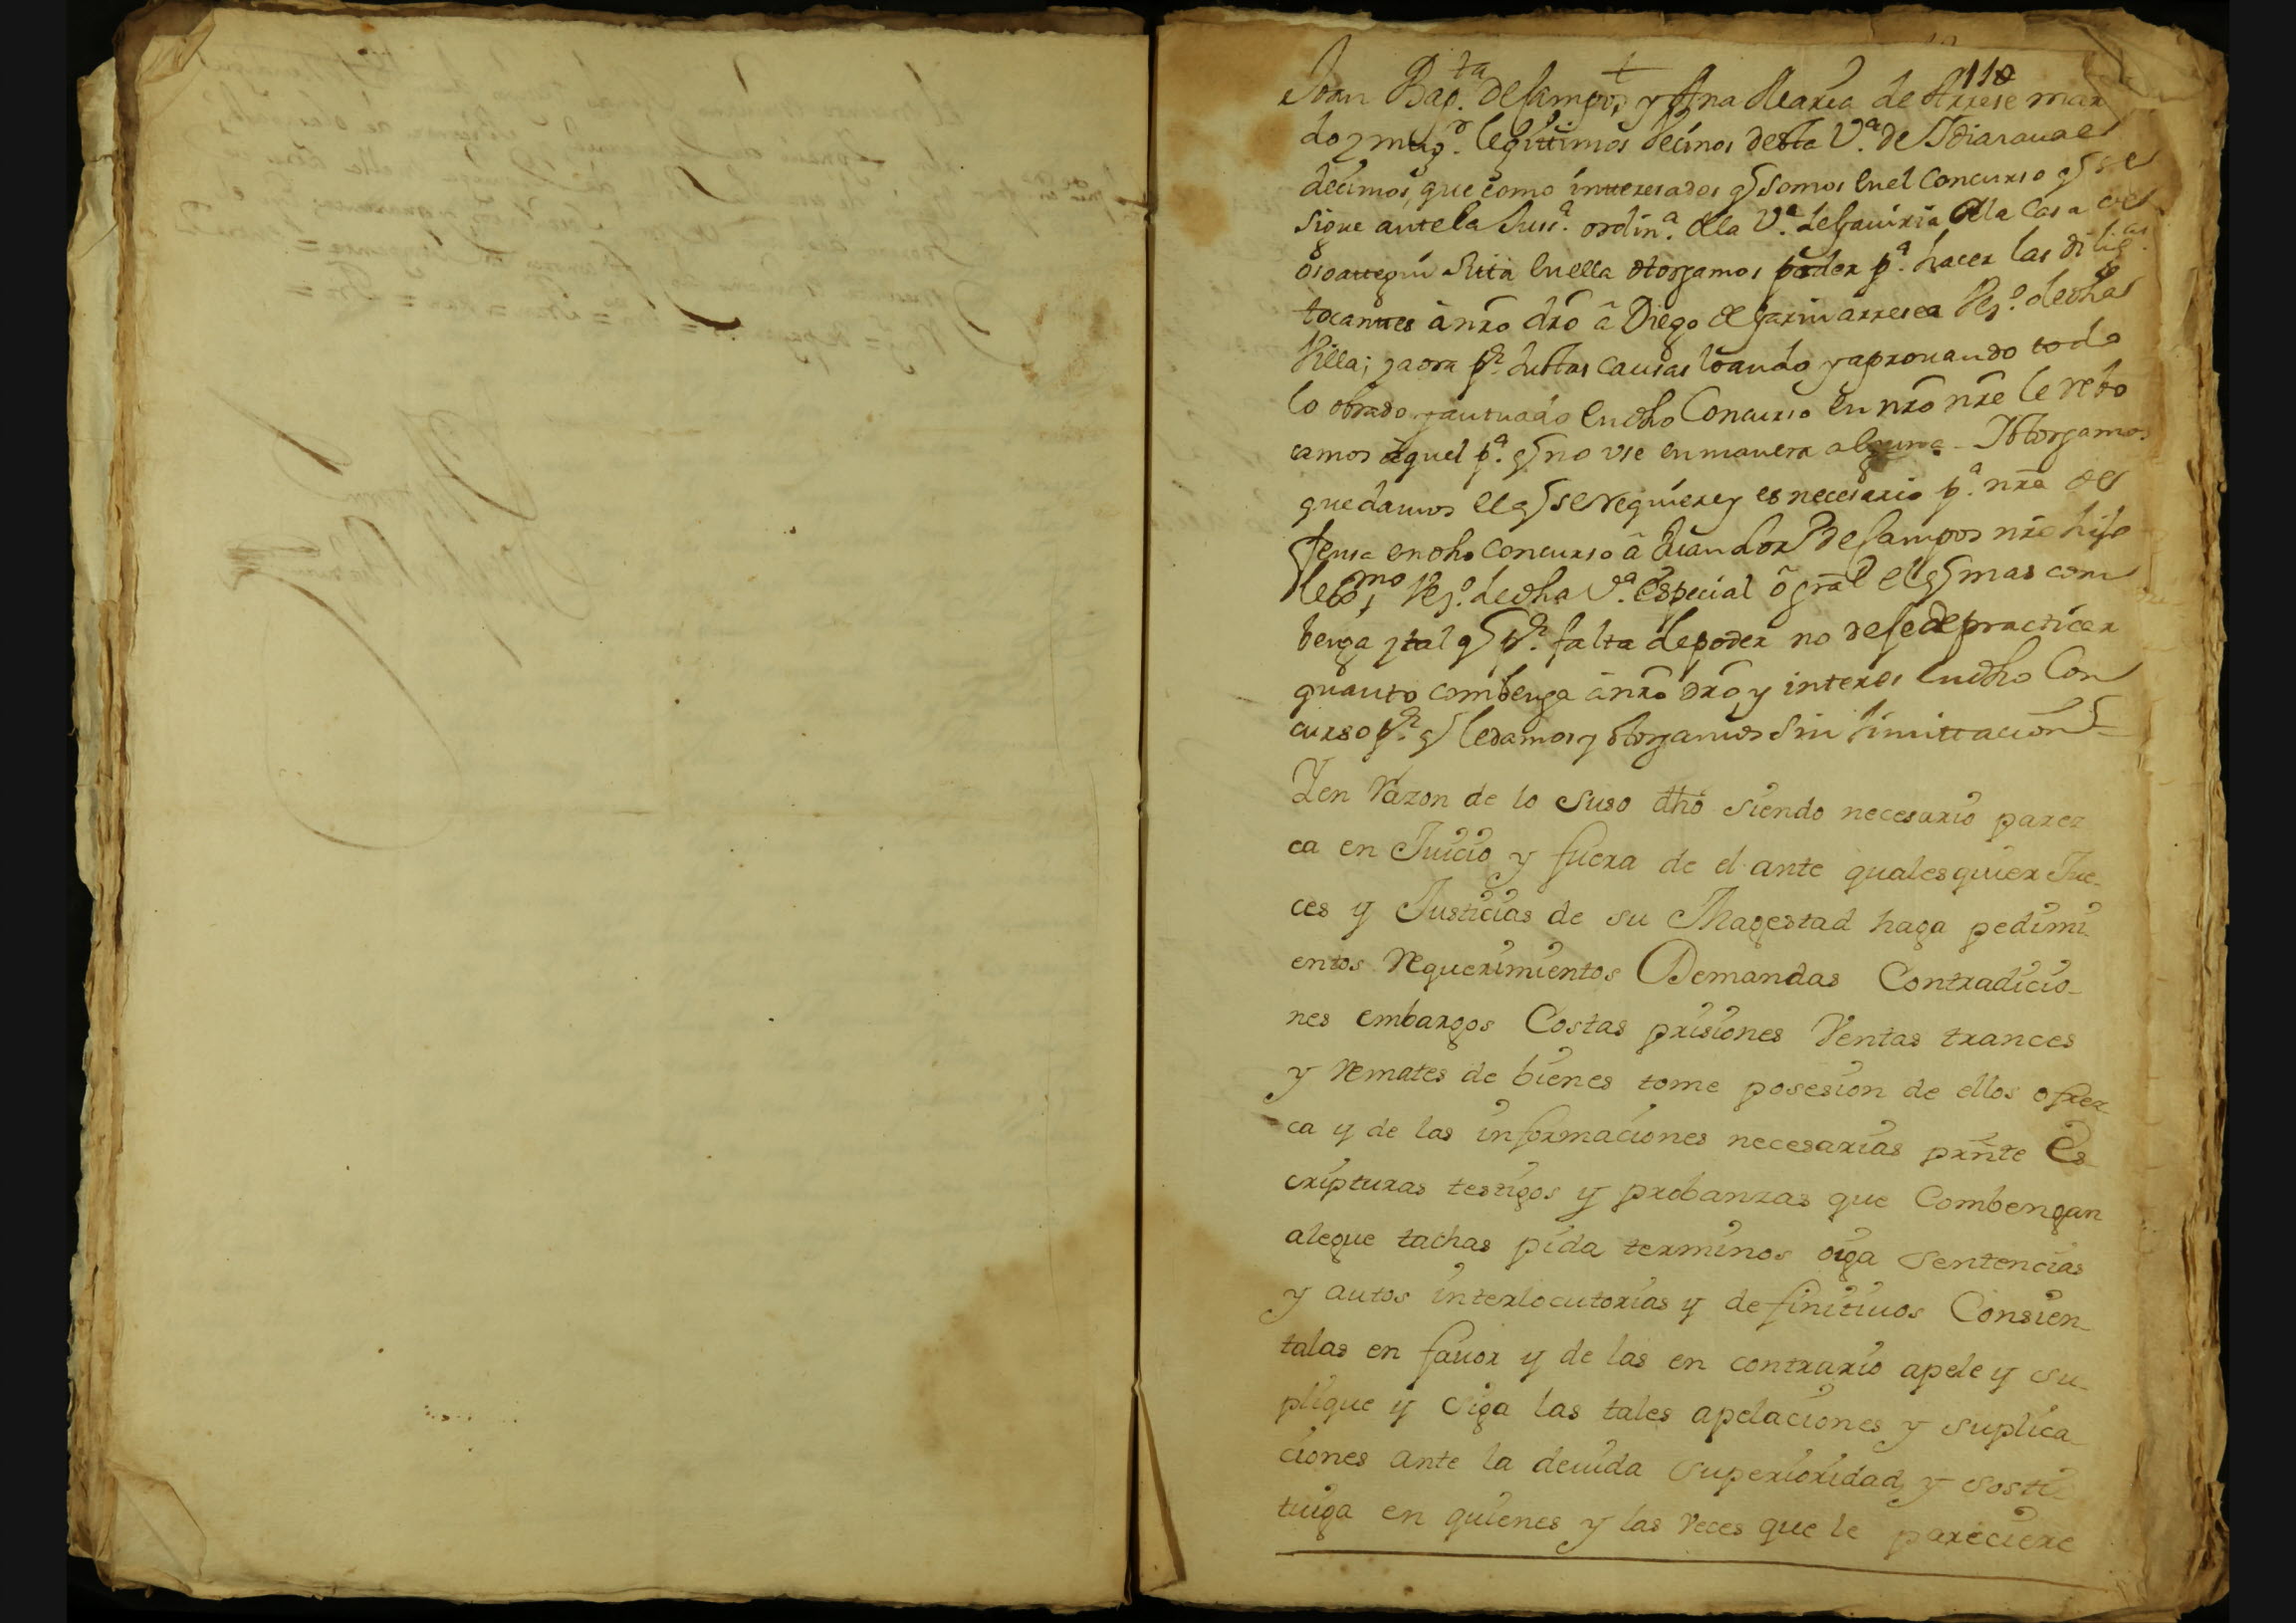 118
Joan Bap.ta de Campos, y Ana Maria de Arrese mari
do y mug.r legitimos vecinos desta V.a de Idiazaual
decimos, que como interesados q somos en el Concurso q se
sigue ante la Jus.a ordin.a de la V.a de Gauiria de la Casa de
osoategui sita en ella otorgamos poder p.a hacer las dilig.as
tocantes â nro dro â Diego de Garinarresea Vez.o de dha
Villa; y aora p.r Justas Causas loando y aprouando todo
lo obrado y autuado en dho Concurso en nro nre le rebo
camos aquel p.a q no vse en manera alguna = Y otorgamos
que damos el q se requiere y es necesario p.a nra de
fensa en dho concurso â Juan de Campos nro hijo
legmo Vez.o de dha V.a especial ô gral el q mas com
benga y tal q p.r falta de poder no dese de practicar
quanto combenga â nro dro, y interes en dho Con
curso p.r q le damos y otorgamos sin limittacion =
Y en razon de lo suso dho siendo necesario parez
ca en Juicio y fuera de el ante qualesquier Jue-
ces y Justicias de su Magestad haga pedimi-
entos requerimientos Demandas Contradicio-
nes embargos Costas prisiones Ventas trances
y remates de bienes tome posesion de ellos ofrez-
ca y de las informaciones necesarias prnte Es-
cripturas testigos y probanzas que Combengan
alegue tachas pida terminos oiga sentencias
y autos interlocutorias y definitiuos Consien-
talas en fauor y de las en contrario apele y su-
plique y siga las tales apelaciones y suplica-
ciones ante la deuida superioridad, y sosti-
tuiga en quienes y las veces que le pareciere